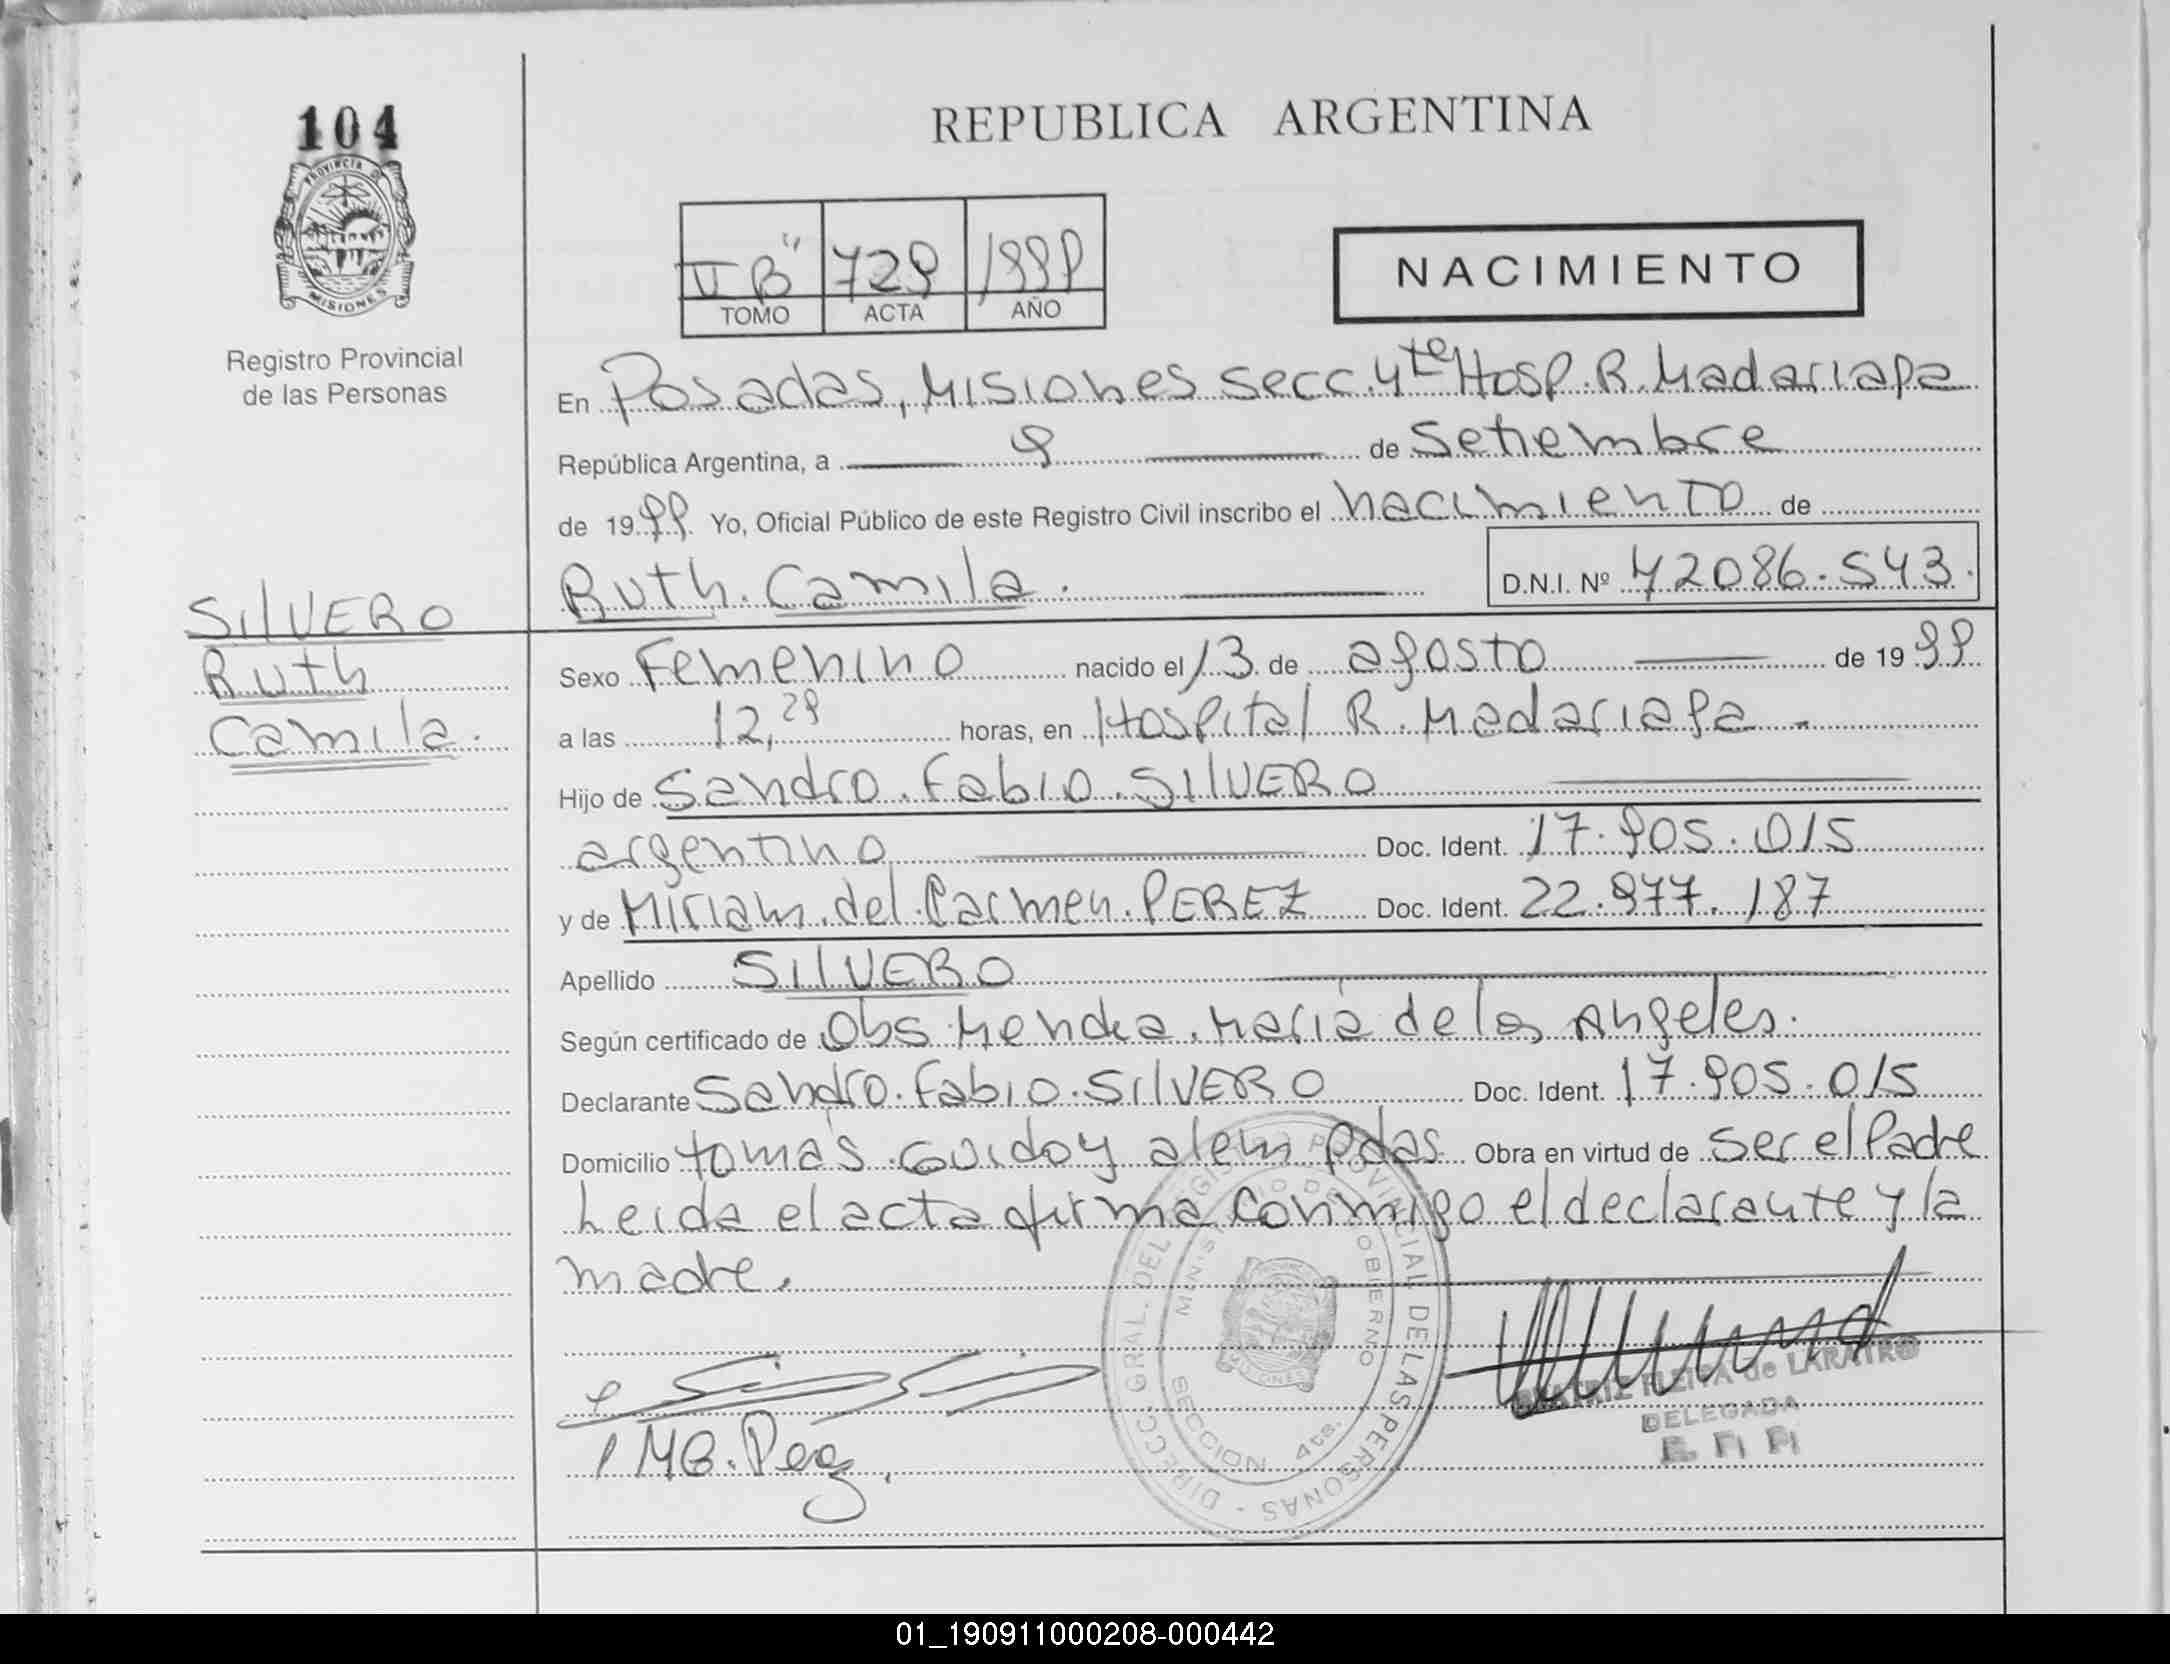 104
PROVINCIA DE
MISIONES
Registro Provincial
de las Personas
REPUBLICA ARGENTINA
II "B" 729 1999
TOMO ACTA AÑO
NACIMIENTO
En Posadas, Misiones Secc. 4te Hosp. R. Madariaga
República Argentina, a 9 de Setiembre
de 1999. Yo, Oficial Público de este Registro Civil inscribo el nacimiento de
Ruth. Camila. D.N.I. Nº 42086.543.
SILVERO
Ruth
Camila.
Sexo Femenino nacido el 13 de agosto de 1999
a las 12,29 horas, en Hospital R. Madariaga.
Hijo de Sandro. Fabio. SILVERO
argentino Doc. Ident. 17.905.015
y de Miriam. del. Carmen. PEREZ Doc. Ident. 22.977.187
Apellido SILVERO
Según certificado de Obs María de los Angeles.
Declarante Sandro. Fabio. SILVERO Doc. Ident. 17.905.015
Domicilio tomás Guido y alem Pdas Obra en virtud de Ser el Padre
Leida el acta firma conmigo el declarante y la
madre.
DIRECC. GRAL. DEL REGISTRO PROVINCIAL DE LAS PERSONAS -
MINISTERIO DE GOBIERNO
MISIONES
SECCION 4ta.
BEATRIZ FLEITA de LARATRO
DELEGADA
01_190911000208-000442